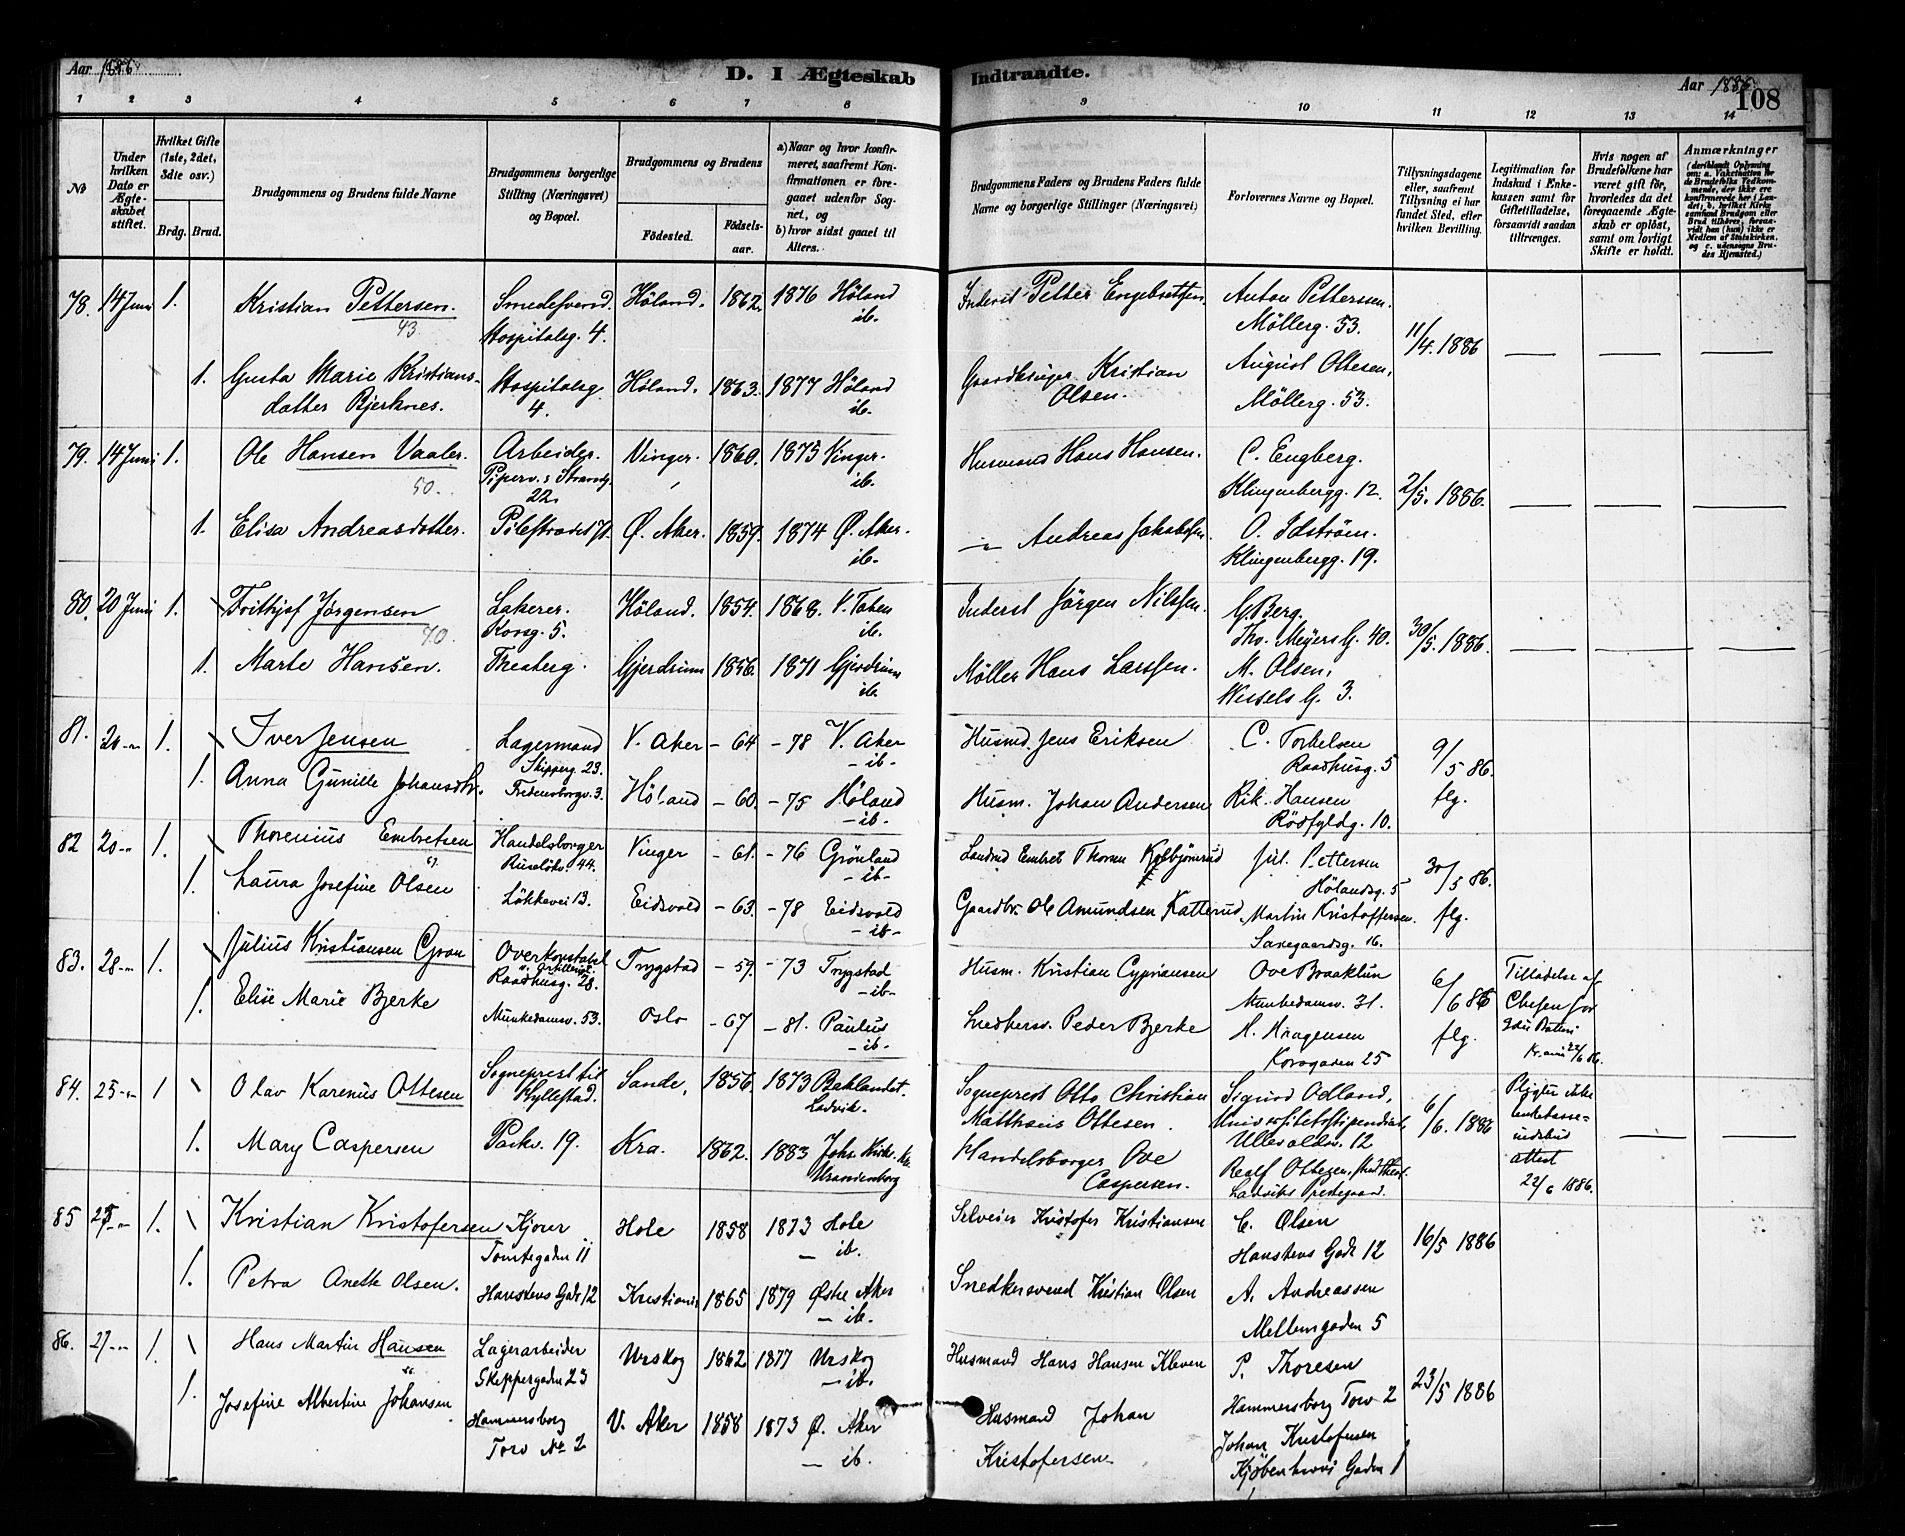 Aar 1886
D. I Ægteskab Indtraadte.
Aar 1886.
108
1 2 3 4 5 6 7 8 9 10 11 12 13 14
No
Under hvilken Dato er Ægteskabet stiftet.
Hvilket Gifte (1ste, 2det, 3die osv.)
Brdg. Brud.
Brudgommens og Brudens fulde Navne
Brudgommens borgerlige Stilling (Næringsvei) og Bopæl.
Brudgommens og Brudens
Fødested.
Fødselsaar.
a) Naar og hvor konfirmeret, saafremt Konfirmationen er foregaaet udenfor Sognet, og
b) hvor sidst gaaet til Alters.
Brudgommens Faders og Brudens Faders fulde Navne og borgerlige Stillinger (Næringsvei)
Forlovernes Navne og Bopæl.
Tillysningsdagene eller, saafremt Tillysning ei har fundet Sted, efter hvilken Bevilling.
Legitimation for Indskud i Enkekassen samt for Giftetilladelse, forsaavidt saadan tiltrænges.
Hvis nogen af Brudefolkene har været gift før, hvorledes da det foregaaende Ægteskab er opløst, samt om lovligt Skifte er holdt.
Anmærkninger
78. 14 Juni 1. Kristian Pettersen. Smedesvend. Höland. 1862. 1876 Höland Inderst Petter Engebretsen Anton Pettersen.
43 Hospitalsg. 4. ib. Möllerg. 53. 11/4. 1886
1. Gusta Marie Kristians- Hospitalsg Höland. 1863. 1877 Höland Gaardbruger Kristian August Ottesen,
datter Bjerknes. 4. ib. Olsen. Möllerg. 53.
79. 14 Juni 1. Ole Hansen Vaaler. Arbeider. Vinger. 1860. 1875 Vinger. Husmand Hans Hansen. C. Engberg.
50. 22. ib. Klingenbergg. 12. 2/5. 1886.
1. Elisa Andreasdatter. Ø. Aker. 1859. 1874 Ø. Aker. Andreas Jakobsen. O. Idström.
ib. Klingenbergg. 19.
80. 20 Juni 1. Frithjof Jörgensen Lakerer. Höland. 1854. 1868. Inderst Jörgen Nilssen. G. Berg.
70. Korsg. 5. ib. Tho. Meyers G. 40. 30/5. 1886.
1. Marte Hansen. Theaterg. Gjerdrum 1856. 1871 Gjerdrum Möller Hans Larssen. M. Olsen,
ib. Wessels G. 3.
81. 20 1. Iver Jensen Lagermand V. Aker - 64 - 78 V. Aker Husmd. Jens Eriksen C. Torkelsen
Skipperg. 23. - ib- Raadhusg. 5 9/5 86.
1. Anna Gunille Johansdtr. Fredensborgv. 3. Höland - 60. - 75 Höland Husm. Johan Andersen Rik. Hansen flg.
- ib. Rödfyldg. 10.
82 20 1. Thorenius Embretsen Handelsborger Vinger - 61. - 76 Grönland Embret Thorsen Jul. Pettersen
44. - ib- Hölandsg. 5 30/5 86.
1. Laura Josefine Olsen Lökkevei 13. Eidsvold - 63. - 78 Eidsvold Gaardbr. Ole Amundsen Katterud Martin Kristoffersen. flg.
- ib- Saxegaardsg. 16.
83. 28 1. Julius Kristiansen Gran Overkonstabel Trygstad - 59. - 73 Trygstad Husm. Kristian Cypriansen Ove Braaklün Tilladelse af
Raadhusg. 28. - ib- Munkedamsv. 31. 6/6 86 Chefen for
1. Elise Marie Bjerke Munkedamsv. 53. Oslo - 67 - 81. Paulus Peder Bjerke H. Haagensen flg.
- ib. Korsgaden 25 22/6 86.
84. 25 1 Olav Karenus Ottesen Sogneprest til Sande, 1856. 1873 Baklandet. Sogneprest Otto Christian Sigurd Odland, Pligter ikke
Hyllestad. Ladvik. Matthæus Ottesen. Universitetsstipendiat 6/6. 1886 enkekasse=
Ullevoldsv. 12 indskud
1. Mary Caspersen Parkv. 19. Kra. 1862. 1883 Johs. Kirke. Handelsborger Ove attest
Uranienborg Caspersen. 22/6 1886.
85 1. Kristian Kristofersen Kjörer Hole 1858 1873 Hole Selveier Kristofer Kristiansen C. Olsen
Tomtegaden 11 - ib. Hanstens Gade 12 16/5 1886
1. Petra Anette Olsen. Hanstens Gade 12 Kristiania 1865 1879 Østre Aker Snedkersvend Kristian Olsen A. Andreassen
- ib. Mellemgaden 5
86. 27 1. Hans Martin Hansen Lagerarbeider Urskog 1862 1877 Urskog Husmand Hans Hansen Kleven P. Thoresen
Skippergaden 23 - ib. Hammersborg Torv 2 23/5 1886
1. Josefine Albertine Johansen Hammersborg V. Aker 1858 1873 Ø. Aker Husmand Johan Johan Kristofersen
Torv No 2 - ib. Kristofersen Kjöbenhavns Gaden 1